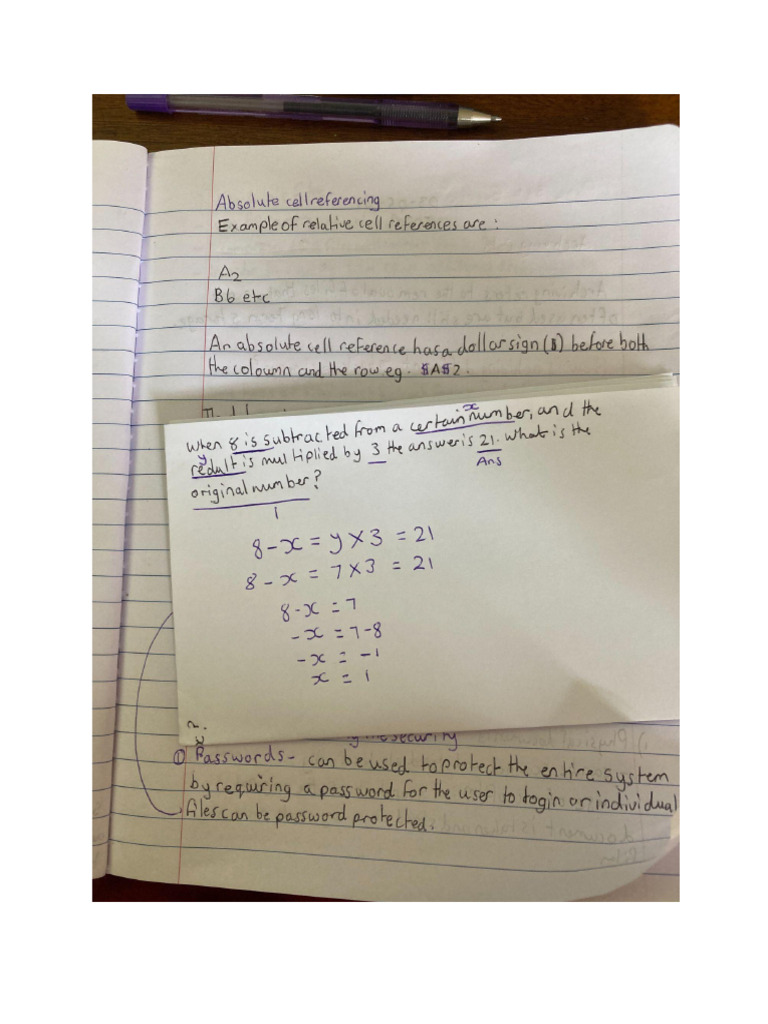 Absolute cell referencing
Example of relative cell references are :
A2
B6 etc
An absolute cell reference has a dollar sign ($) before both
the coloumn and the row eg. $A$2.
x
When 8 is subtracted from a certain number, and the
y
redult is multiplied by 3 the answer is 21. What is the
Ans
original number?
1
8 - x = y x 3 = 21
8 - x = 7 x 3 = 21
8 - x = 7
- x = 7 - 8
- x = - 1
x = 1
2.
security
① Passwords - can be used to protect the entire system
by requiring a password for the user to login or individual
files can be password protected.